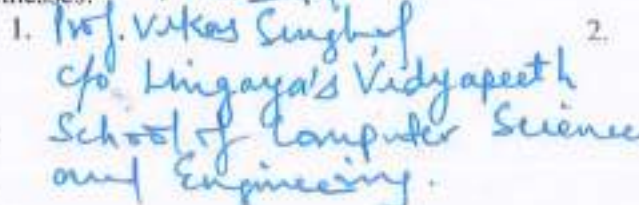 nesses:
1. Prof. Vikas Singhal 2.
c/o Lingaya's Vidyapeeth
School of Computer Science
and Engineering.